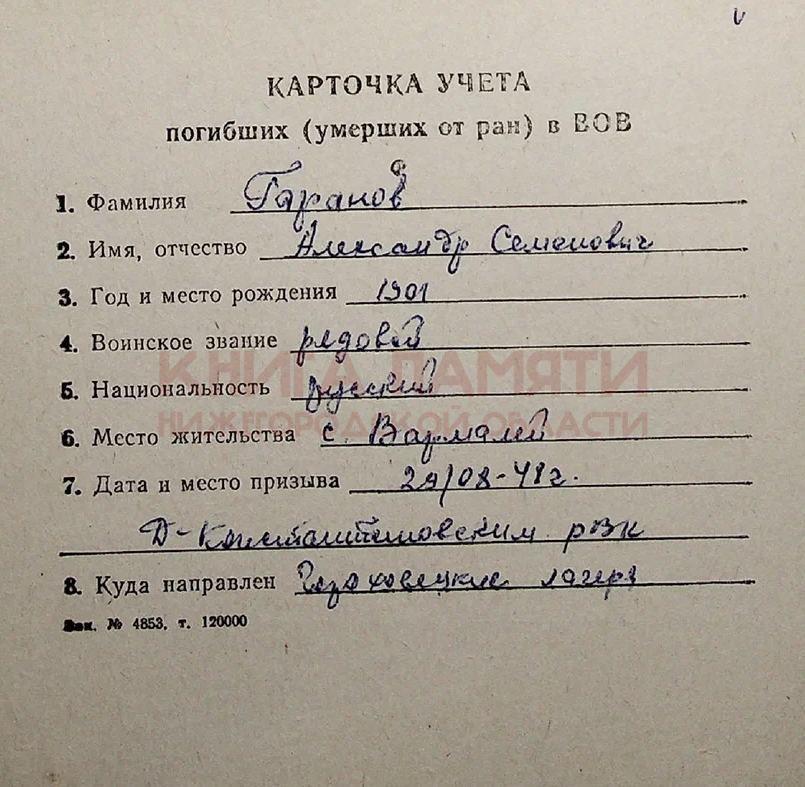 КАРТОЧКА УЧЕТА
погибших (умерших от ран) в ВОВ
1. Фамилия Гаранов
2. Имя, отчество Александр Семенович
3. Год и место рождения 1901
4. Воинское звание рядовой
КНИГА ПАМЯТИ
5. Национальность русский
НИЖЕГОРОДСКОЙ ОБЛАСТИ
6. Место жительства с. Вармалей
7. Дата и место призыва 29/08-41г.
Д-Константиновским РВК
8. Куда направлен Гороховецкие лагеря
Зак. № 4853, т. 120000